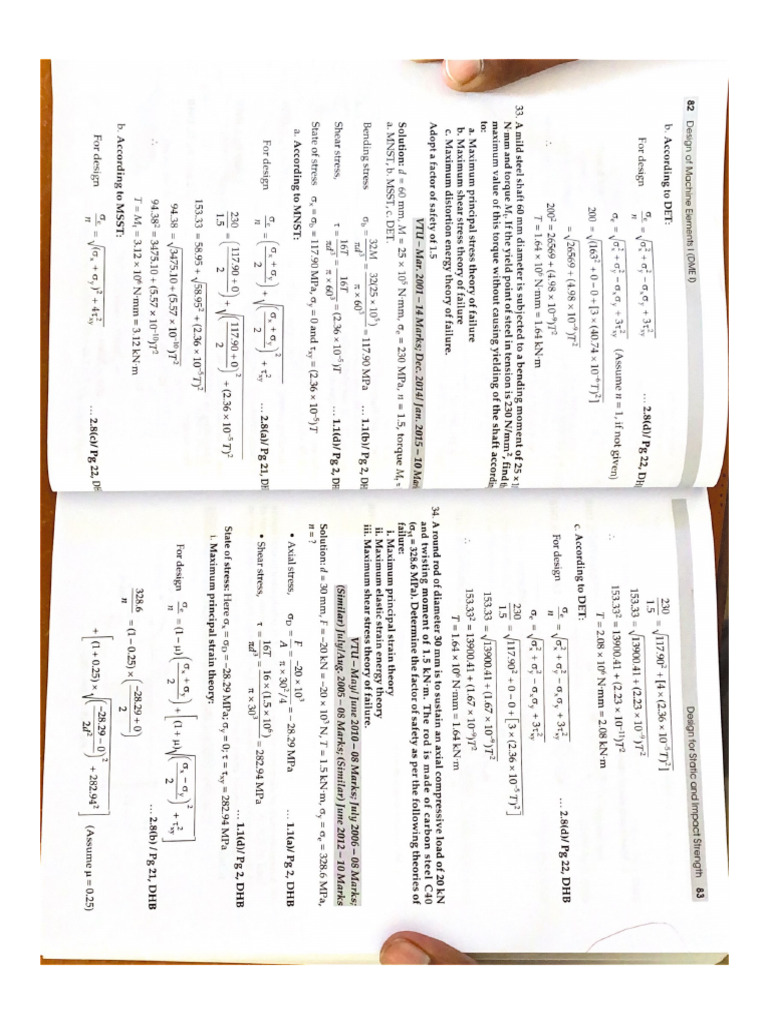 82 Design of Machine Elements I (DME I)
b. According to DET:
For design σₑ/n = √(σₓ² + σᵧ² − σₓσᵧ + 3τₓᵧ²) ... 2.8(d)/ Pg 22, DH
σₑ = √(σₓ² + σᵧ² − σₓσᵧ + 3τₓᵧ²) (Assume n = 1, if not given)
200 = √(163² + 0 − 0 + [3 × (40.74 × 10⁻⁶T)²]
= √(26569 + (4.98 × 10⁻⁹)T²)
∴ 200² = 26569 + (4.98 × 10⁻⁹)T²
T = 1.64 × 10⁶ N·mm = 1.64 kN·m
33. A mild steel shaft 60 mm diameter is subjected to a bending moment of 25 × 1
N·mm and torque Mₜ. If the yield point of steel in tension is 230 N/mm², find
maximum value of this torque without causing yielding of the shaft accordin
to:
a. Maximum principal stress theory of failure
b. Maximum shear stress theory of failure
c. Maximum distortion energy theory of failure.
Adopt a factor of safety of 1.5
VTU – Mar. 2001 – 14 Marks; Dec. 2014/ Jan. 2015 – 10 Ma
Solution: d = 60 mm, M = 25 × 10⁵ N·mm, σₑ = 230 MPa, n = 1.5, torque Mₜ
a. MNST, b. MSST, c. DET.
Bending stress σ_b = 32M/πd³ = 32(25 × 10⁵)/(π × 60³) = 117.90 MPa ... 1.1(b)/ Pg 2, DH
Shear stress, τ = 16T/πd³ = 16T/(π × 60³) = (2.36 × 10⁻⁵)T ... 1.1(d)/ Pg 2, DH
State of stress σₓ = σ_b = 117.90 MPa, σᵧ = 0 and τₓᵧ = (2.36 × 10⁻⁵)T
a. According to MNST:
For design σₑ/n = ((σₓ + σᵧ)/2) + √(((σₓ + σᵧ)/2)² + τₓᵧ²) ... 2.8(a)/ Pg 21, DH
230/1.5 = ((117.90 + 0)/2) + √(((117.90 + 0)/2)² + (2.36 × 10⁻⁵T)²)
153.33 = 58.95 + √(58.95² + (2.36 × 10⁻⁵T)²)
94.38 = √(3475.10 + (5.57 × 10⁻¹⁰)T²)
∴ 94.38² = 3475.10 + (5.57 × 10⁻¹⁰)T²
T = Mₜ = 3.12 × 10⁶ N·mm = 3.12 kN·m
b. According to MSST:
For design σₑ/n = √((σₓ + σᵧ)² + 4τₓᵧ²) ... 2.8(c)/ Pg 22, DH
Design for Static and Impact Strength 83
230/1.5 = √(117.90² + [4 × (2.36 × 10⁻⁵T)²]
153.33 = √(13900.41 + (2.23 × 10⁻⁹)T²)
∴ 153.33² = 13900.41 + (2.23 × 10⁻¹¹)T²
T = 2.08 × 10⁶ N·mm = 2.08 kN·m
c. According to DET:
For design σₑ/n = √(σₓ² + σᵧ² − σₓσᵧ + 3τₓᵧ²) ... 2.8(d)/ Pg 22, DHB
σₑ = √(σₓ² + σᵧ² − σₓσᵧ + 3τₓᵧ²)
230/1.5 = √(117.90² + 0 − 0 + [3 × (2.36 × 10⁻⁵T)²])
153.33 = √(13900.41 + (1.67 × 10⁻⁹)T²)
∴ 153.33² = 13900.41 + (1.67 × 10⁻⁹)T²
T = 1.64 × 10⁶ N·mm = 1.64 kN·m
34. A round rod of diameter 30 mm is to sustain an axial compressive load of 20 kN
and twisting moment of 1.5 kN·m. The rod is made of carbon steel C40
(σᵧₜ = 328.6 MPa). Determine the factor of safety as per the following theories of
failure:
i. Maximum principal strain theory
ii. Maximum elastic strain energy theory
iii. Maximum shear stress theory of failure.
VTU – May/ June 2010 – 08 Marks; July 2006 – 08 Marks;
(Similar) July/Aug. 2005 – 08 Marks; (Similar) June 2012 – 10 Marks
Solution: d = 30 mm, F = −20 kN = −20 × 10³ N, T = 1.5 kN·m, σᵧ = σₑ = 328.6 MPa,
n = ?
• Axial stress, σ_D = F/A = −20 × 10³/(π × 30²/4) = − 28.29 MPa ... 1.1(a)/ Pg 2, DHB
• Shear stress, τ = 16T/πd³ = 16 × (1.5 × 10⁶)/(π × 30³) = 282.94 MPa ... 1.1(d)/ Pg 2, DHB
State of stress: Here σₓ = σ_D = −28.29 MPa; σᵧ = 0; τ = τₓᵧ = 282.94 MPa
i. Maximum principal strain theory:
For design σₑ/n = (1 − μ)((σₓ + σᵧ)/2) + [(1 + μ)√(((σₓ − σᵧ)/2)² + τₓᵧ²)] ... 2.8(b) / Pg 21, DHB
328.6/n = (1 − 0.25) × ((−28.29 + 0)/2)
+ [(1 + 0.25) × √(((−28.29 − 0)/2d²)² + 282.94²)] (Assume μ = 0.25)